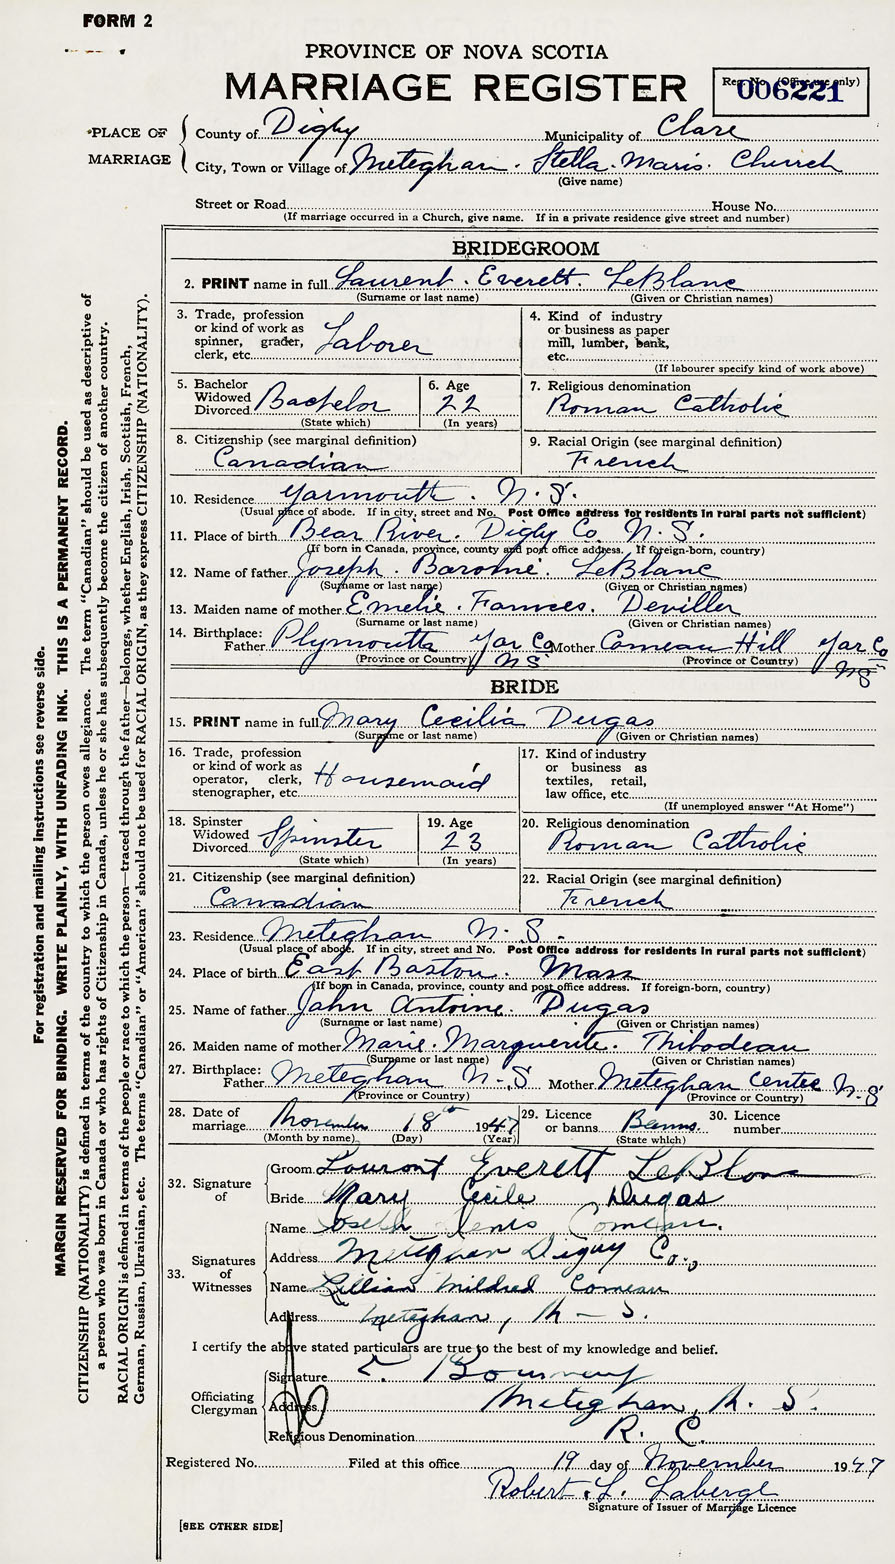 FORM 2
PROVINCE OF NOVA SCOTIA
MARRIAGE REGISTER
Reg. No. (Office use only)
006221
PLACE OF MARRIAGE
County of Digby Municipality of Clare
City, Town or Village of Meteghan. Stella. Maris. Church
(Give name)
Street or Road House No.
(If marriage occurred in a Church, give name. If in a private residence give street and number)
BRIDEGROOM
2. PRINT name in full Laurent. Everett. LeBlanc
(Surname or last name) (Given or Christian names)
3. Trade, profession or kind of work as spinner, grader, clerk, etc. Laborer
4. Kind of industry or business as paper mill, lumber, bank, etc.
(If labourer specify kind of work above)
5. Bachelor Widowed Divorced Bachelor
(State which)
6. Age 22
(In years)
7. Religious denomination
Roman Catholic
8. Citizenship (see marginal definition)
Canadian
9. Racial Origin (see marginal definition)
French
10. Residence Yarmouth. N.S.
(Usual place of abode. If in city, street and No. Post Office address for residents in rural parts not sufficient)
11. Place of birth Bear River. Digby Co. N.S.
(If born in Canada, province, county and post office address. If foreign-born, country)
12. Name of father Joseph. LeBlanc
(Surname or last name) (Given or Christian names)
13. Maiden name of mother Emelie. Frances. Deviller
(Surname or last name) (Given or Christian names)
14. Birthplace: Father Plymouth Yar Co NS Mother Comeau Hill Yar Co NS
(Province or Country) (Province or Country)
BRIDE
15. PRINT name in full Mary Cecilia Dugas
(Surname or last name) (Given or Christian names)
16. Trade, profession or kind of work as operator, clerk, stenographer, etc. Housemaid
17. Kind of industry or business as textiles, retail, law office, etc.
(If unemployed answer "At Home")
18. Spinster Widowed Divorced Spinster
(State which)
19. Age 23
(In years)
20. Religious denomination
Roman Catholic
21. Citizenship (see marginal definition)
Canadian
22. Racial Origin (see marginal definition)
French
23. Residence Meteghan N.S.
(Usual place of abode. If in city, street and No. Post Office address for residents in rural parts not sufficient)
24. Place of birth East Baston. Mass
(If born in Canada, province, county and post office address. If foreign-born, country)
25. Name of father John Antoine. Dugas
(Surname or last name) (Given or Christian names)
26. Maiden name of mother Marie. Marguerite. Thibodeau
(Surname or last name) (Given or Christian names)
27. Birthplace: Father Meteghan N.S Mother Meteghan Centre N.S
(Province or Country) (Province or Country)
28. Date of marriage November 18th 1947
(Month by name) (Day) (Year)
29. Licence or banns Banns
(State which)
30. Licence number
32. Signature of
Groom Laurent Everett LeBlanc
Bride Mary Cecile Dugas
33. Signatures of Witnesses
Name Joseph Denis Comeau.
Address Meteghan Digby Co.,
Name Lillian Mildred Comeau
Address Meteghan, N-S.
I certify the above stated particulars are true to the best of my knowledge and belief.
Officiating Clergyman
Signature
Address Meteghan, N. S.
Religious Denomination R. C.
Registered No. Filed at this office 19 day of November 1947
Robert. L. Laberge
Signature of Issuer of Marriage Licence
[SEE OTHER SIDE]
For registration and mailing instructions see reverse side.
MARGIN RESERVED FOR BINDING. WRITE PLAINLY, WITH UNFADING INK. THIS IS A PERMANENT RECORD.
CITIZENSHIP (NATIONALITY) is defined in terms of the country to which the person owes allegiance. The term "Canadian" should be used as descriptive of
a person who was born in Canada or who has rights of Citizenship in Canada, unless he or she has subsequently become the citizen of another country.
RACIAL ORIGIN is defined in terms of the people or race to which the person—traced through the father—belongs, whether English, Irish, Scottish, French,
German, Russian, Ukrainian, etc. The terms "Canadian" or "American" should not be used for RACIAL ORIGIN, as they express CITIZENSHIP (NATIONALITY).